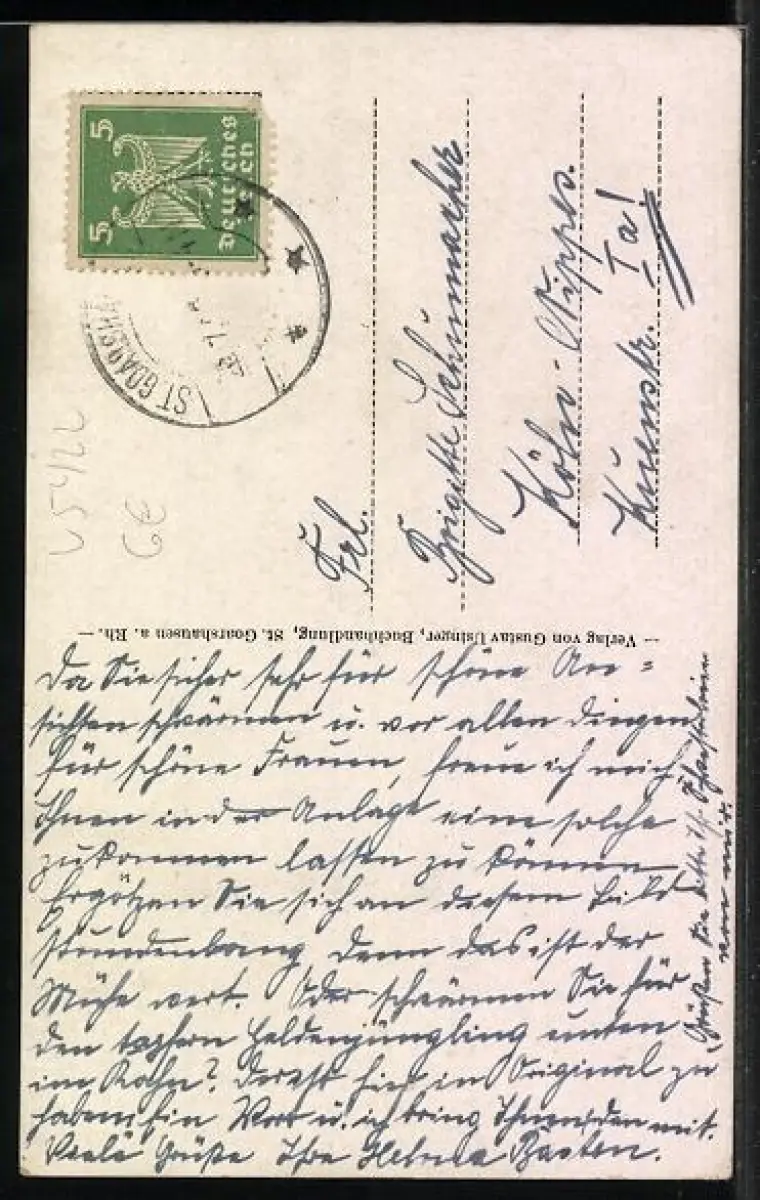 5
5
Deutsches
Reich
ST GOARSHA
Frl.
Brigitte Schumacher
Köln-Nippes.
Ia!
V54/22
6€
— Verlag von Gustav Usinger, Buchhandlung, St. Goarshausen a. Rh. —
Da Sie sicher sehr für schöne An=
sichten schwärmen u. vor allen Dingen
für schöne Frauen, freue ich mich
Ihnen in der Anlage eine solche
zukommen lassen zu können
Ergötzen Sie sich an diesem Bild
stundenlang denn das ist der
Mühe wert. Oder schwärmen Sie für
den tapfern Heldenjüngling unten
im Kahn? Der ist hier in Original zu
haben, ein Wort u. ich bring Ihnen den mit.
Viele Grüße Ihre Helma
Grüßen Sie bitte
von mir.